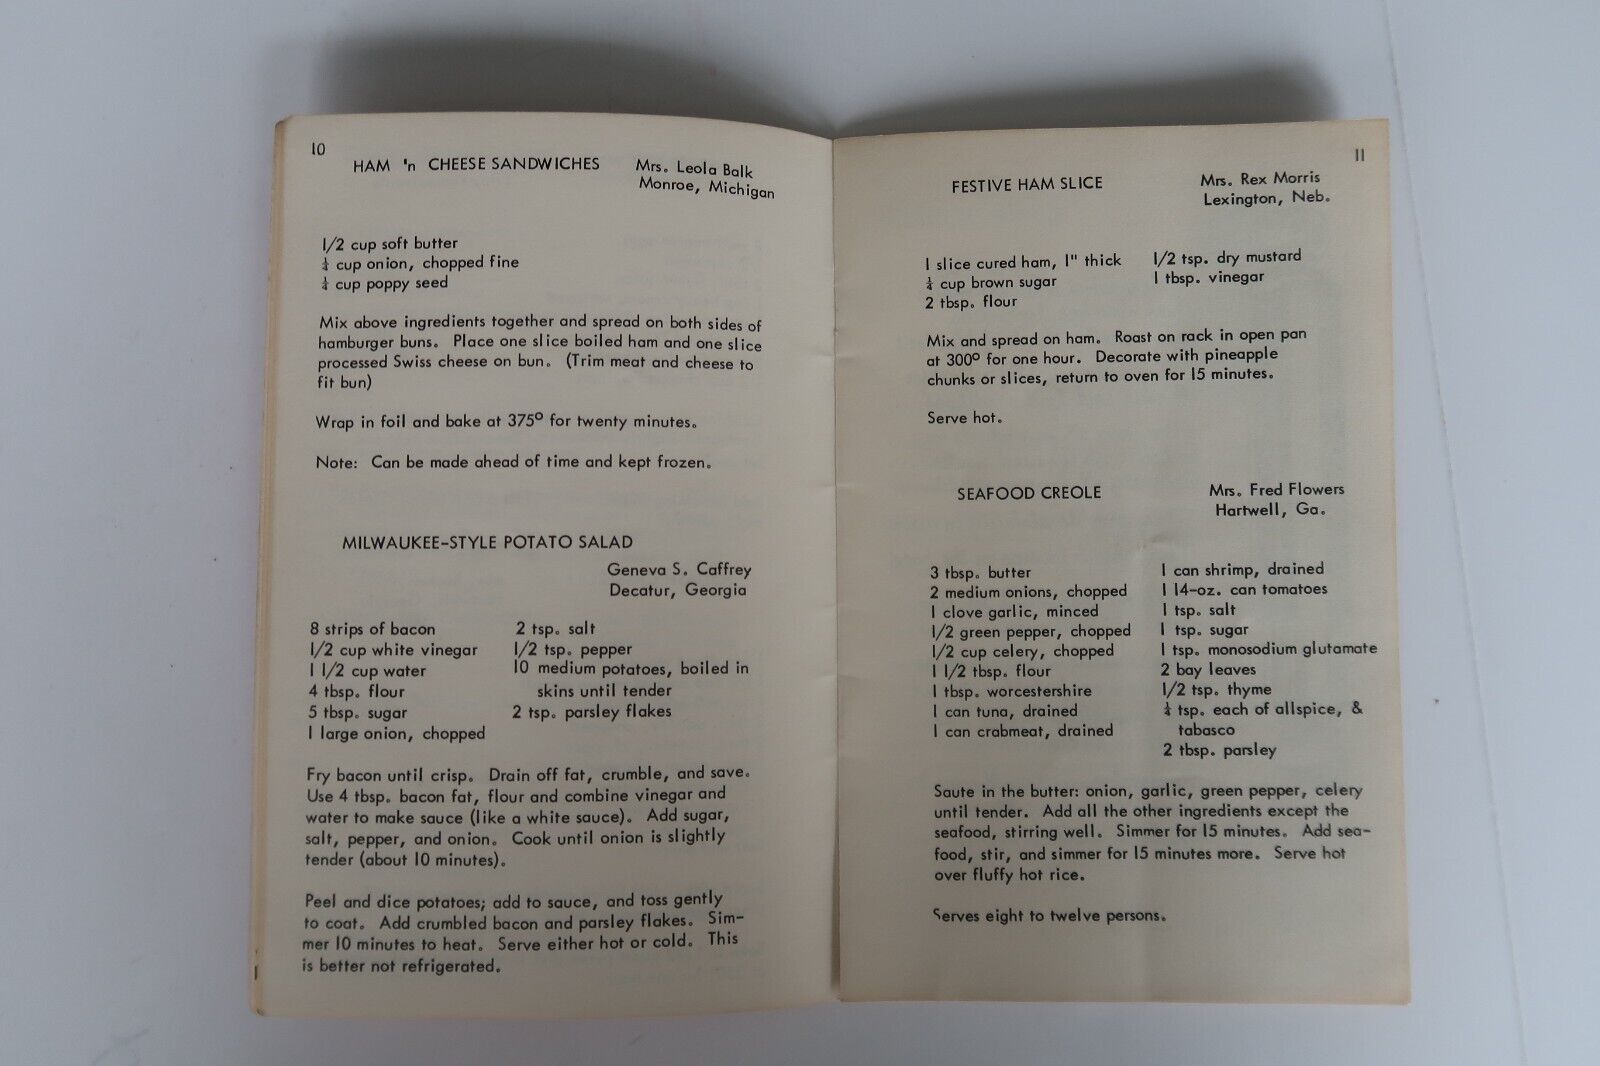 10
HAM 'n CHEESE SANDWICHES
Mrs. Leola Balk
Monroe, Michigan
1/2 cup soft butter
¼ cup onion, chopped fine
¼ cup poppy seed
Mix above ingredients together and spread on both sides of
hamburger buns. Place one slice boiled ham and one slice
processed Swiss cheese on bun. (Trim meat and cheese to
fit bun)
Wrap in foil and bake at 375° for twenty minutes.
Note: Can be made ahead of time and kept frozen.
MILWAUKEE-STYLE POTATO SALAD
Geneva S. Caffrey
Decatur, Georgia
8 strips of bacon
1/2 cup white vinegar
1 1/2 cup water
4 tbsp. flour
5 tbsp. sugar
1 large onion, chopped
2 tsp. salt
1/2 tsp. pepper
10 medium potatoes, boiled in
skins until tender
2 tsp. parsley flakes
Fry bacon until crisp. Drain off fat, crumble, and save.
Use 4 tbsp. bacon fat, flour and combine vinegar and
water to make sauce (like a white sauce). Add sugar,
salt, pepper, and onion. Cook until onion is slightly
tender (about 10 minutes).
Peel and dice potatoes; add to sauce, and toss gently
to coat. Add crumbled bacon and parsley flakes. Sim-
mer 10 minutes to heat. Serve either hot or cold. This
is better not refrigerated.
11
FESTIVE HAM SLICE
Mrs. Rex Morris
Lexington, Neb.
1 slice cured ham, 1" thick
¼ cup brown sugar
2 tbsp. flour
1/2 tsp. dry mustard
1 tbsp. vinegar
Mix and spread on ham. Roast on rack in open pan
at 300° for one hour. Decorate with pineapple
chunks or slices, return to oven for 15 minutes.
Serve hot.
SEAFOOD CREOLE
Mrs. Fred Flowers
Hartwell, Ga.
3 tbsp. butter
2 medium onions, chopped
1 clove garlic, minced
1/2 green pepper, chopped
1/2 cup celery, chopped
1 1/2 tbsp. flour
1 tbsp. worcestershire
1 can tuna, drained
1 can crabmeat, drained
1 can shrimp, drained
1 14-oz. can tomatoes
1 tsp. salt
1 tsp. sugar
1 tsp. monosodium glutamate
2 bay leaves
1/2 tsp. thyme
¼ tsp. each of allspice, &
tabasco
2 tbsp. parsley
Saute in the butter: onion, garlic, green pepper, celery
until tender. Add all the other ingredients except the
seafood, stirring well. Simmer for 15 minutes. Add sea-
food, stir, and simmer for 15 minutes more. Serve hot
over fluffy hot rice.
Serves eight to twelve persons.